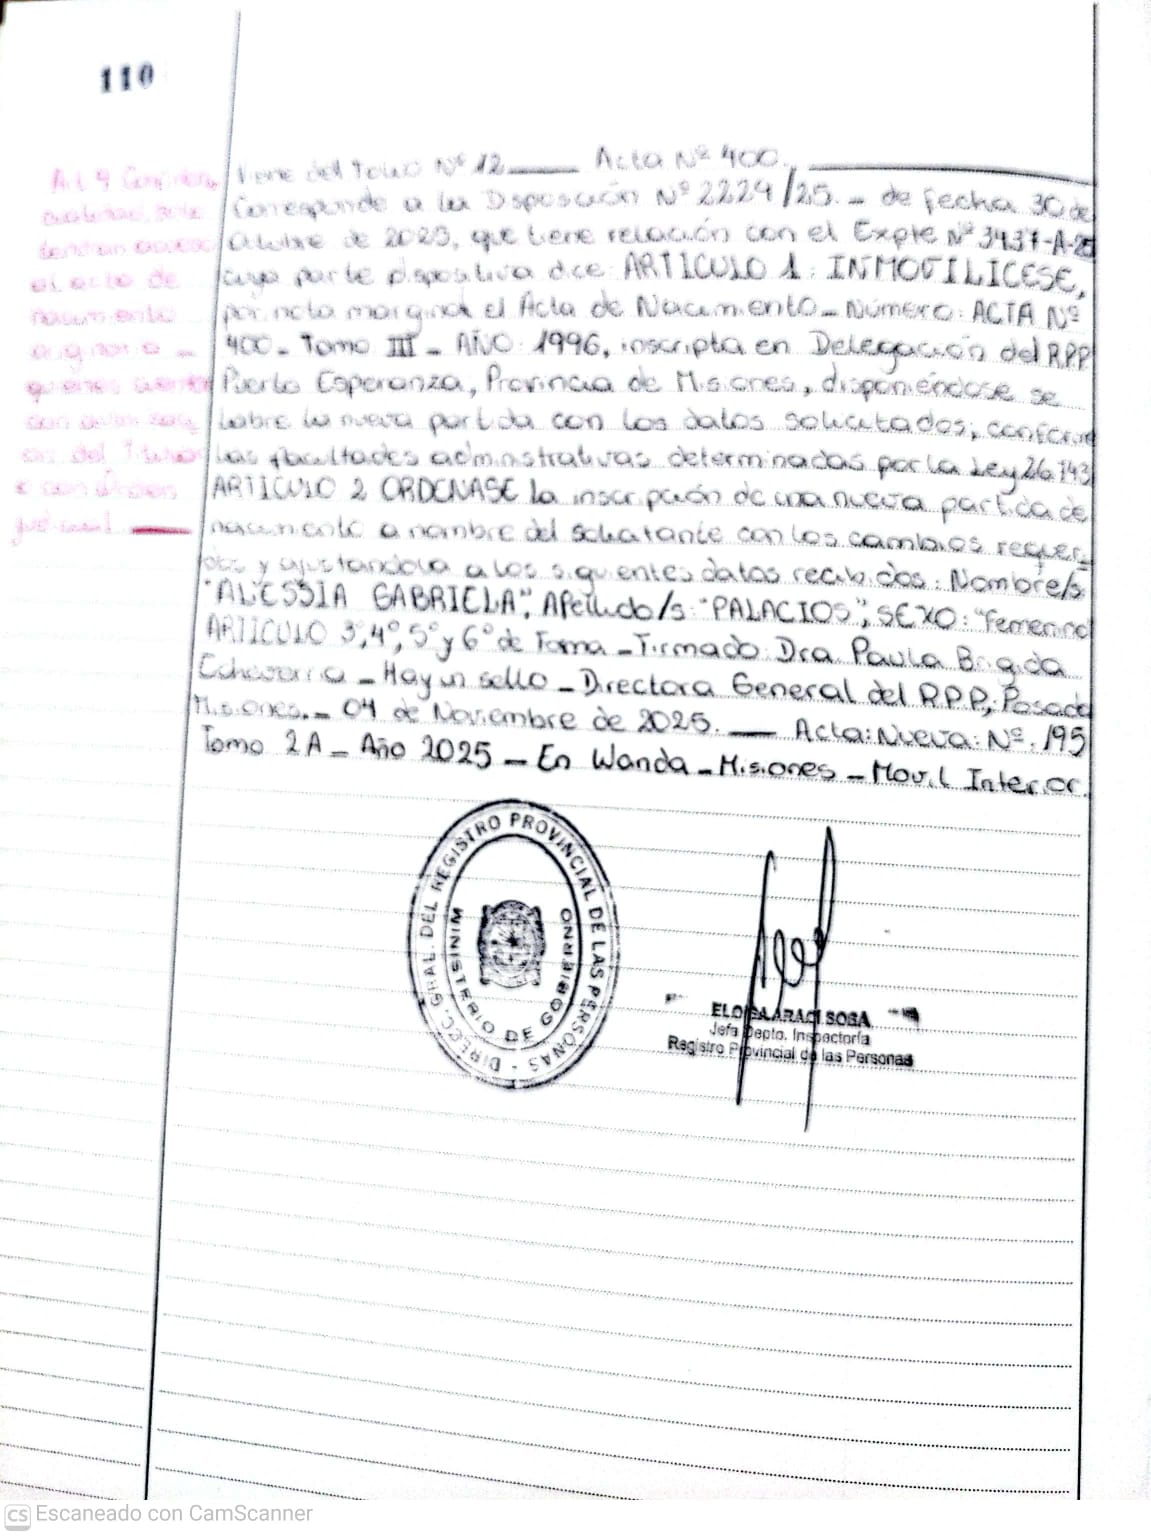 110
Viene del Tomo Nº 12 ____ Acta Nº 400. ____
Corresponde a la Disposición Nº 2224/25. _ de fecha 30 de
Octubre de 2025, que tiene relación con el Expte Nº 3437-A-25
cuya parte dispositiva dice: ARTICULO 1: INMOVILICESE,
por nota marginal el Acta de Nacimiento _ Número: ACTA Nº
400 _ Tomo III _ AÑO: 1996, inscripta en Delegación del RPP
Puerto Esperanza, Provincia de Misiones, disponiéndose se
labre la nueva partida con los datos solicitados, conforme
las facultades administrativas determinadas por la Ley 26.743
ARTICULO 2 ORDENASE la inscripción de una nueva partida de
nacimiento a nombre del solicitante con los cambios requeri_
dos y ajustandola a los siguientes datos recibidos: Nombre/s:
"ALESSIA GABRIELA", Apellido/s: "PALACIOS", SEXO: "Femenino
ARTICULO 3º, 4º, 5º y 6º de Forma _ Firmado: Dra Paula Brigida
Echeverria _ Hay un sello _ Directora General del R.P.P, Posadas
Misiones. _ 04 de Noviembre de 2025. ____ Acta: Nueva: Nº. 195
Tomo 2A _ Año 2025 _ En Wanda _ Misiones _ Movil Interior.
Art 9 Confiden
cialidad, solo
tendran acceso
al acta de
nacimiento
originaria _
quienes cuenten
con autorizaci
on del Titular
o con orden
judicial ____
DIREC. GRAL. DEL REGISTRO PROVINCIAL DE LAS PERSONAS -
MINISTERIO DE GOBIERNO
ELOISA ARACI SOSA
Jefa Depto. Inspectoría
Registro Provincial de las Personas
CS Escaneado con CamScanner